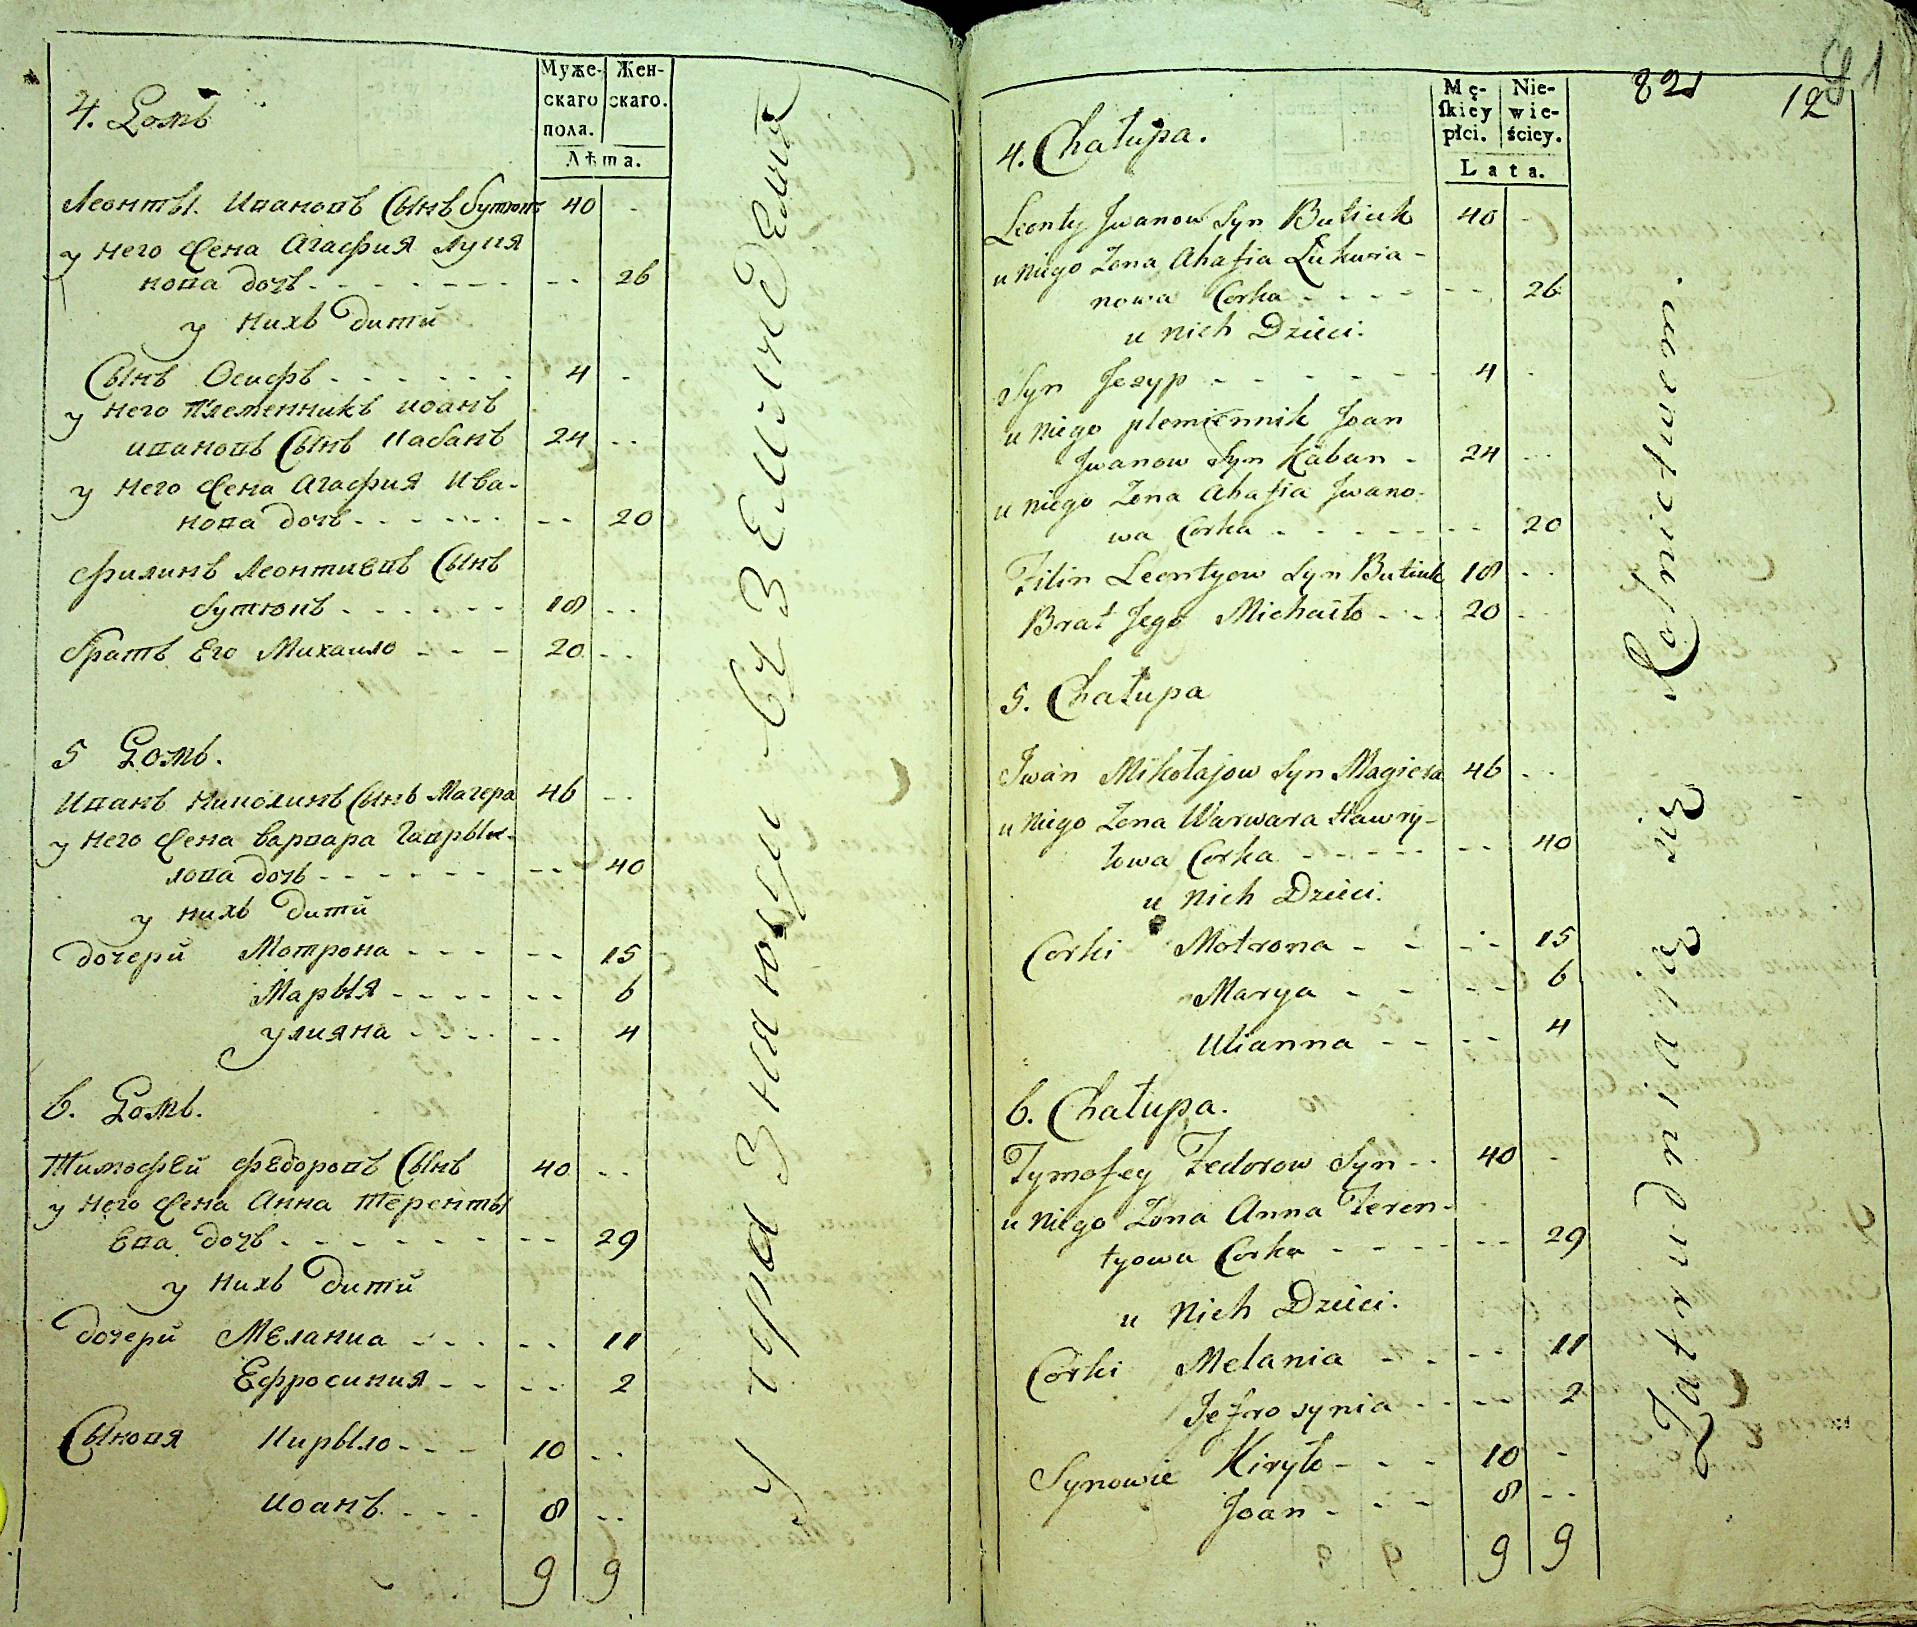 Муже-
скаго
пола.
Жен-
скаго.
Лѣта.
4. Домъ
Леонтьи Ивановъ Сынъ Бутюкъ 40 -
у него Жена Агафия Лукя
нова дочь - - - - - - - - 26
у нихъ дити
Сынъ Осифъ - - - - - - 4 -
у него племенникъ иоанъ
ивановъ Сынъ Кабанъ 24 - -
у него Жена Агафия Ива-
нова дочь - - - - - - - - 20
Филипъ Леонтиевъ Сынъ
Бутюкъ - - - - - - 18 - -
братъ Его Михаило - - - 20 - -
5 Домъ.
Иванъ Николинъ Сынъ Магера 46 - -
у него Жена Варвара Гаврыи-
лова дочь - - - - - - - - 40
у нихъ дити
дочери Мотрона - - - - - - 15
Марыя - - - - - - 6
улияна - - - - - - 4
6. Домъ.
Тимофей Федоровъ Сынъ 40 - -
у него Жена Анна Теренты
ева дочь - - - - - - - - - 29
у нихъ дити
дочери Мелания - - - - - - 11
Ефросиния - - - - 2
Сыновя Кирыло - - - 10 - -
Иоанъ - - - 8 - -
9 9
Mę-
skiey
płci.
Nie-
wie-
ściey.
Lata.
821
12
4. Chałupa.
Leonty Jwanow Syn Butiuk 40 -
u niego Zona Ahafia Łukwia-
nowa Corka - - - - - - 26
u nich Dzieci.
Syn Jezyp - - - - - - - 4 -
u niego plemiennik Joan
Jwanow Syn Kaban - 24 - -
u niego Zona Ahafia Jwano-
wa Corka - - - - - - - 20
Filin Leontyow Syn Butiuk 18 - -
Brat Jego Michaiło - - - 20 - -
5. Chałupa
Jwan Mikołajow Syn Magiera 46 - -
u niego Zona Warwara Hawry-
łowa Corka - - - - - - - 40
u nich Dzieci.
Corki Motrona - - - - 15
Marya - - - - 6
Ulianna - - - - 4
6. Chałupa.
Tymofey Fedorow Syn - - 40 -
u niego Zona Anna Teren-
tyowa Corka - - - - - - 29
u nich Dzieci.
Corki Melania - - - - 11
Jefrosynia - - - - 2
Synowie Kiryło - - - 10 -
Joan - - - 8 - -
9 9
Zatrudniaja się Rolnictwem.